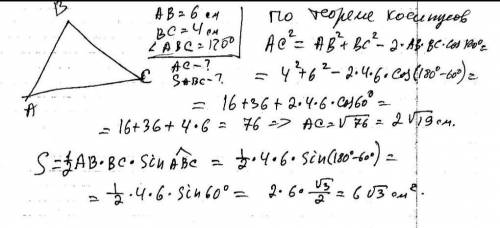 B
A
C
AB = 6 см
BC = 4 см
∠ABC = 120°
AC - ?
S ABC - ?
по теореме косинусов
AC² = AB² + BC² - 2·AB·BC·cos 120° =
= 4² + 6² - 2·4·6·cos(180° - 60°) =
= 16 + 36 + 2·4·6·cos 60° =
= 16 + 36 + 4·6 = 76 => AC = √76 = 2√19 см.
S = ½ AB·BC·sin ABC = ½·4·6·sin(180° - 60°) =
= ½·4·6·sin 60° = 2·6·√3/2 = 6√3 см².